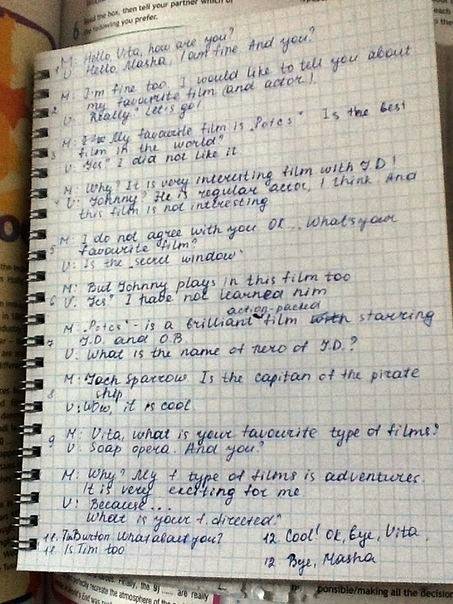 6 Read the box, then tell your partner which of
the following you prefer.
1 M: Hello, Vita, how are you?
V: Hello Masha, I am fine. And you?
2 M: I'm fine too. I would like to tell you about
my favourite film (and actor)
V: Really? Let's go!
3 M: My favourite film is „Potcs" Is the best
film in the world"
V: Yes? I did not like it
4 M: Why? It is very interesting film with J.D!
V: Johnny? He is regular actor, I think. And
this film is not interesting
5 M: I do not agree with you OK... What's your
favourite film?
V: Is the „secret window"
6 M: But Johnny plays in this film too
V: Yes? I have not learned him
action-packed
7 M: „Potcs" - is a brilliant film with starring
J.D. and O.B.
V: What is the name of hero of J.D.?
8 M: Jach Sparrow. Is the capitan of the pirate
ship
V: Wow, it is cool
9 M: Vita, what is your favourite type of films?
V: Soap opera. And you?
M: Why? My f type of films is adventures.
It is very exciting for me
V: Because...
What is your f. directed?
11. Tim Burton. What about you?
11. Is Tim too
12. Cool! OK, Bye, Vita
12. Bye, Masha
are really
perfectly recreate the atmosphere of the
ponsible/making all the decision